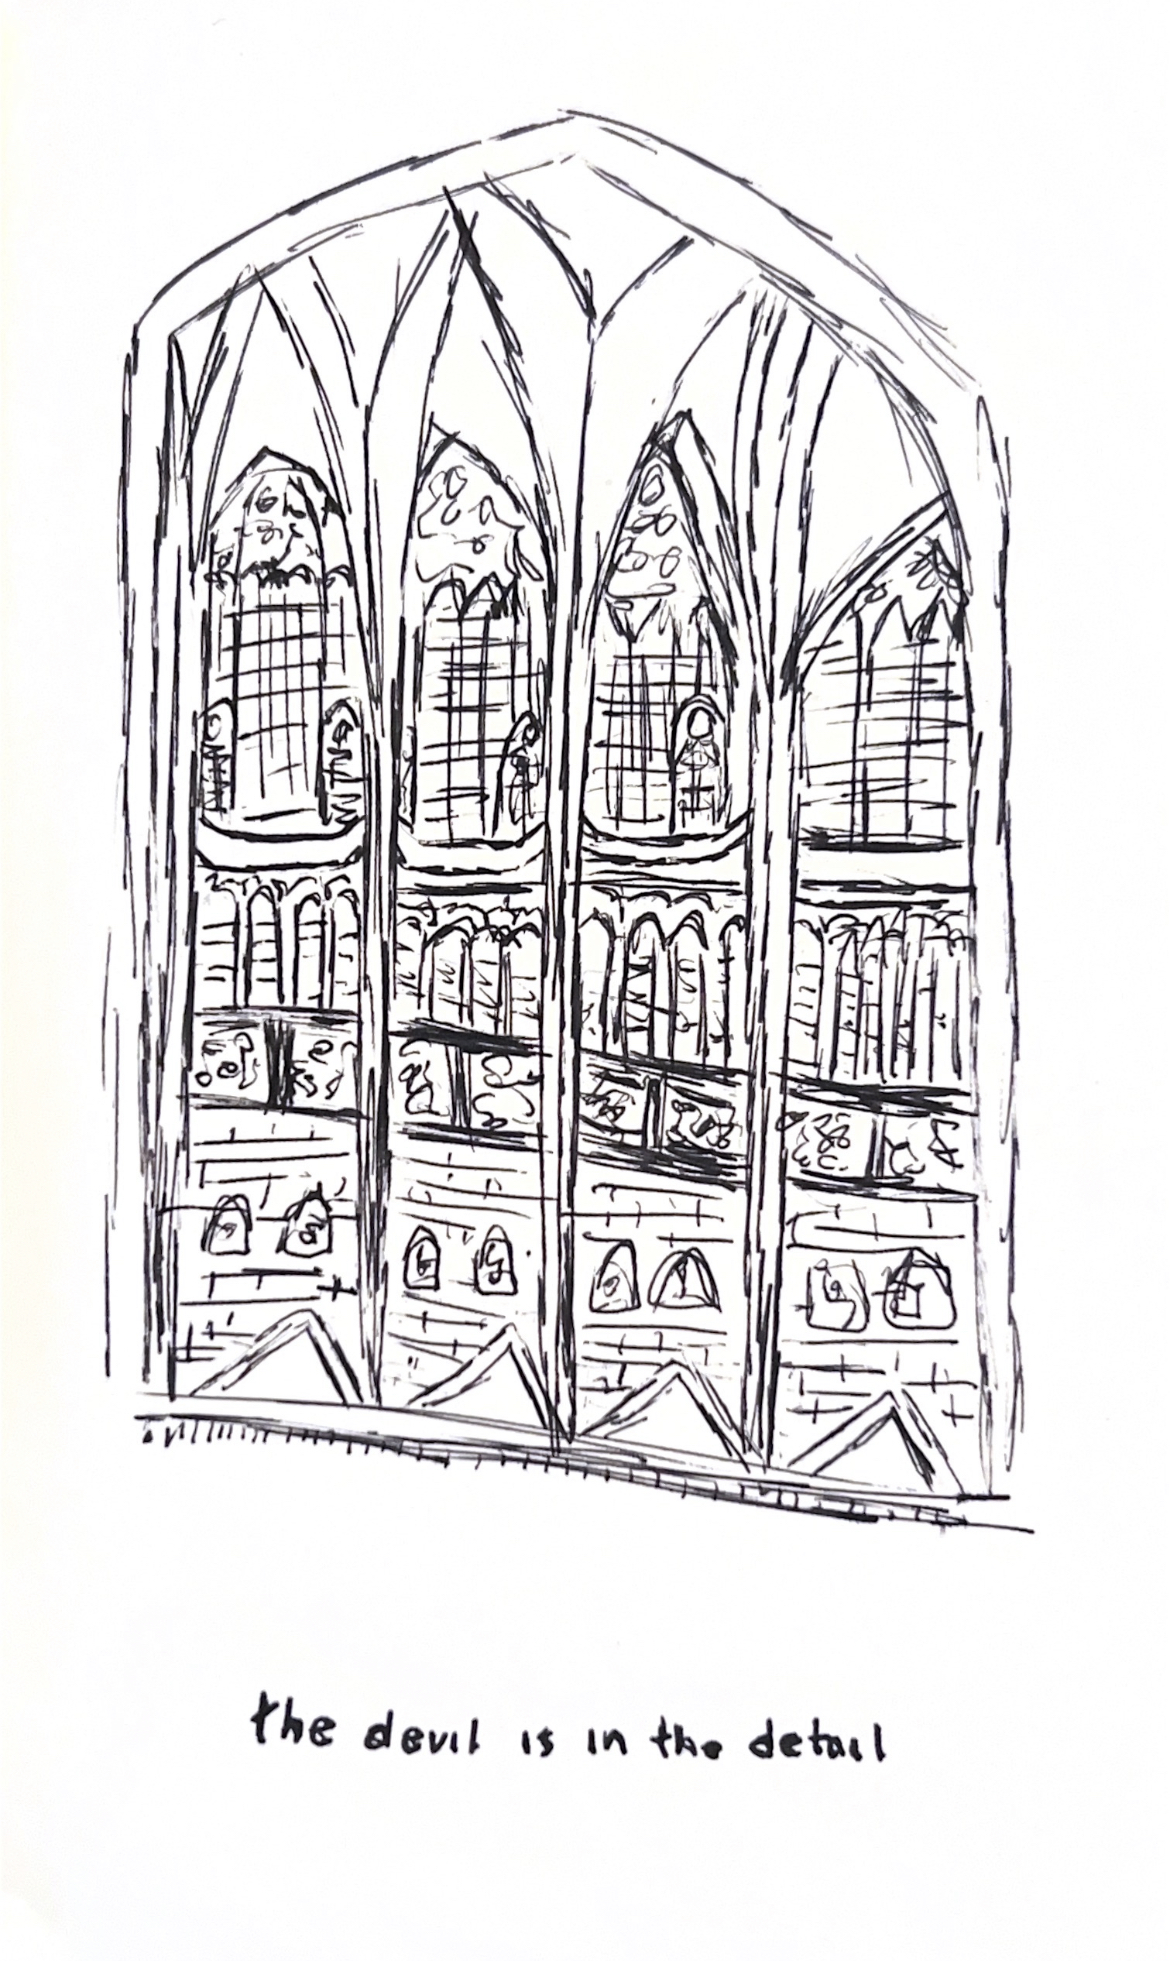 the devil is in the detail